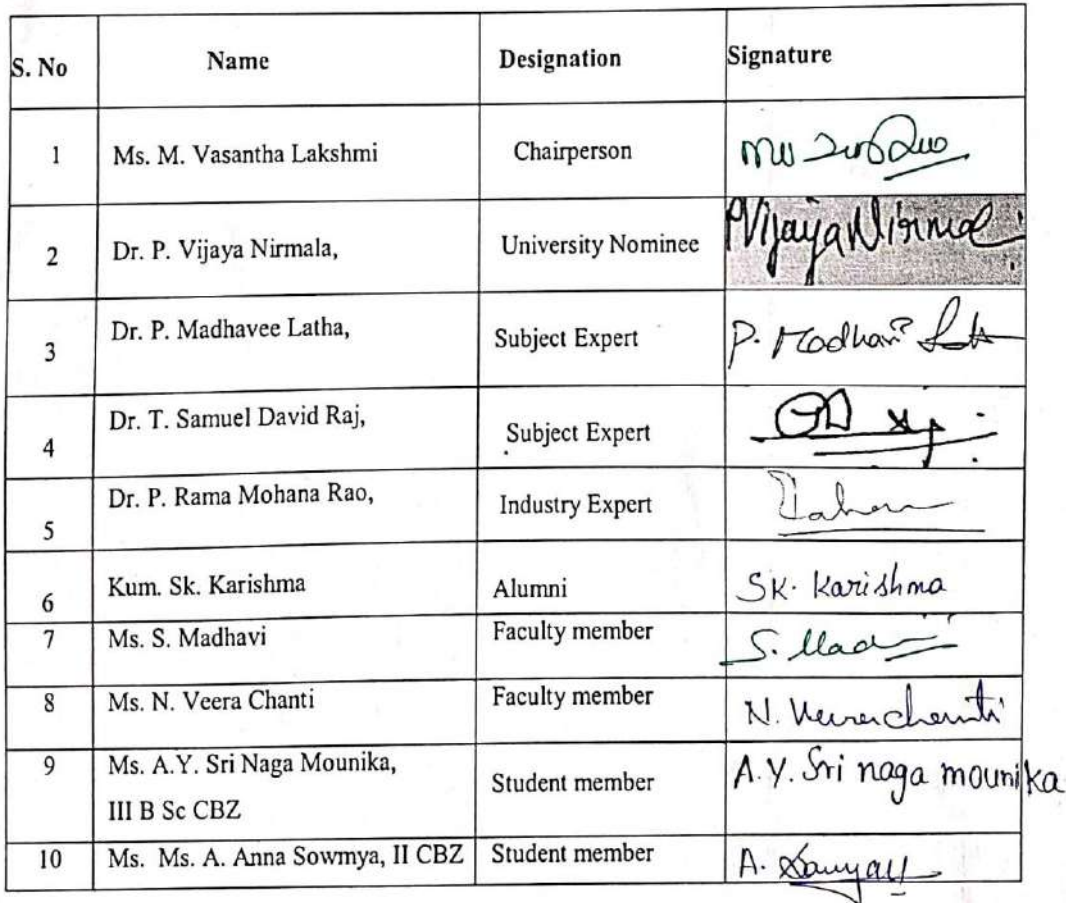 S. No Name Designation Signature
1 Ms. M. Vasantha Lakshmi Chairperson
2 Dr. P. Vijaya Nirmala, University Nominee PVijaya Nirmal
3 Dr. P. Madhavee Latha, Subject Expert P. Madhavi
4 Dr. T. Samuel David Raj, Subject Expert
5 Dr. P. Rama Mohana Rao, Industry Expert
6 Kum. Sk. Karishma Alumni SK. Karishma
7 Ms. S. Madhavi Faculty member S. Mad
8 Ms. N. Veera Chanti Faculty member N. Veerachanti
9 Ms. A.Y. Sri Naga Mounika, Student member A.Y. Sri naga mounika
III B Sc CBZ
10 Ms. Ms. A. Anna Sowmya, II CBZ Student member A. Sowmya